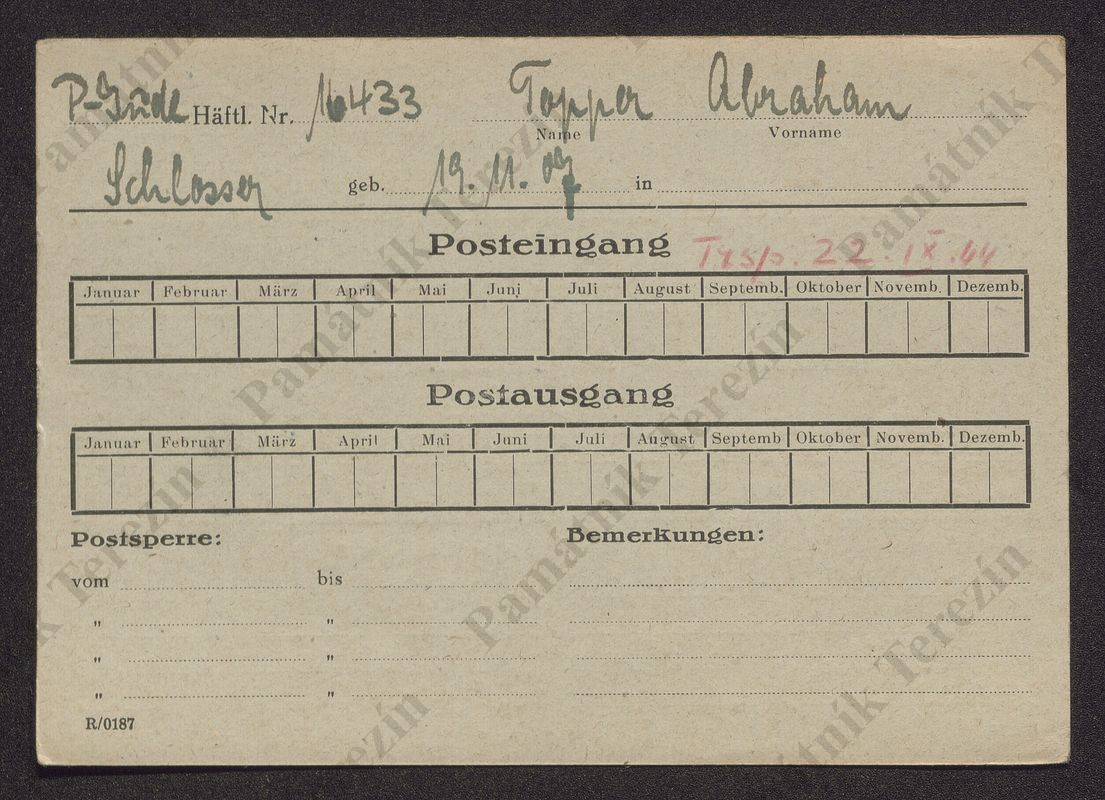 P-Jude Häftl. Nr. 16433 Topper Abraham
Name Vorname
Schlosser geb. 19. 11. 09 in
Posteingang Trsp. 22. IX. 44
Januar Februar März April Mai Juni Juli August Septemb. Oktober Novemb. Dezemb.
Postausgang
Januar Februar März April Mai Juni Juli August Septemb Oktober Novemb. Dezemb.
Postsperre: Bemerkungen:
vom bis
" "
" "
" "
R/0187
Památník Terezín